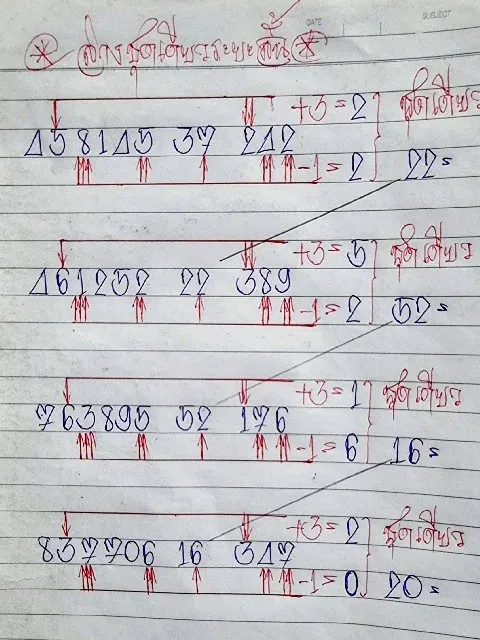 DATE SUBJECT
* ล่างชุดเดียวระยะสั้น *
+3=2 ชุดเดียว
458145 37 242
-1=2 22=
+3=5 ชุดเดียว
461252 22 389
-1=2 52=
+3=1 ชุดเดียว
763895 52 176
-1=6 16=
+3=2 ชุดเดียว
837706 16 347
-1=0 20=